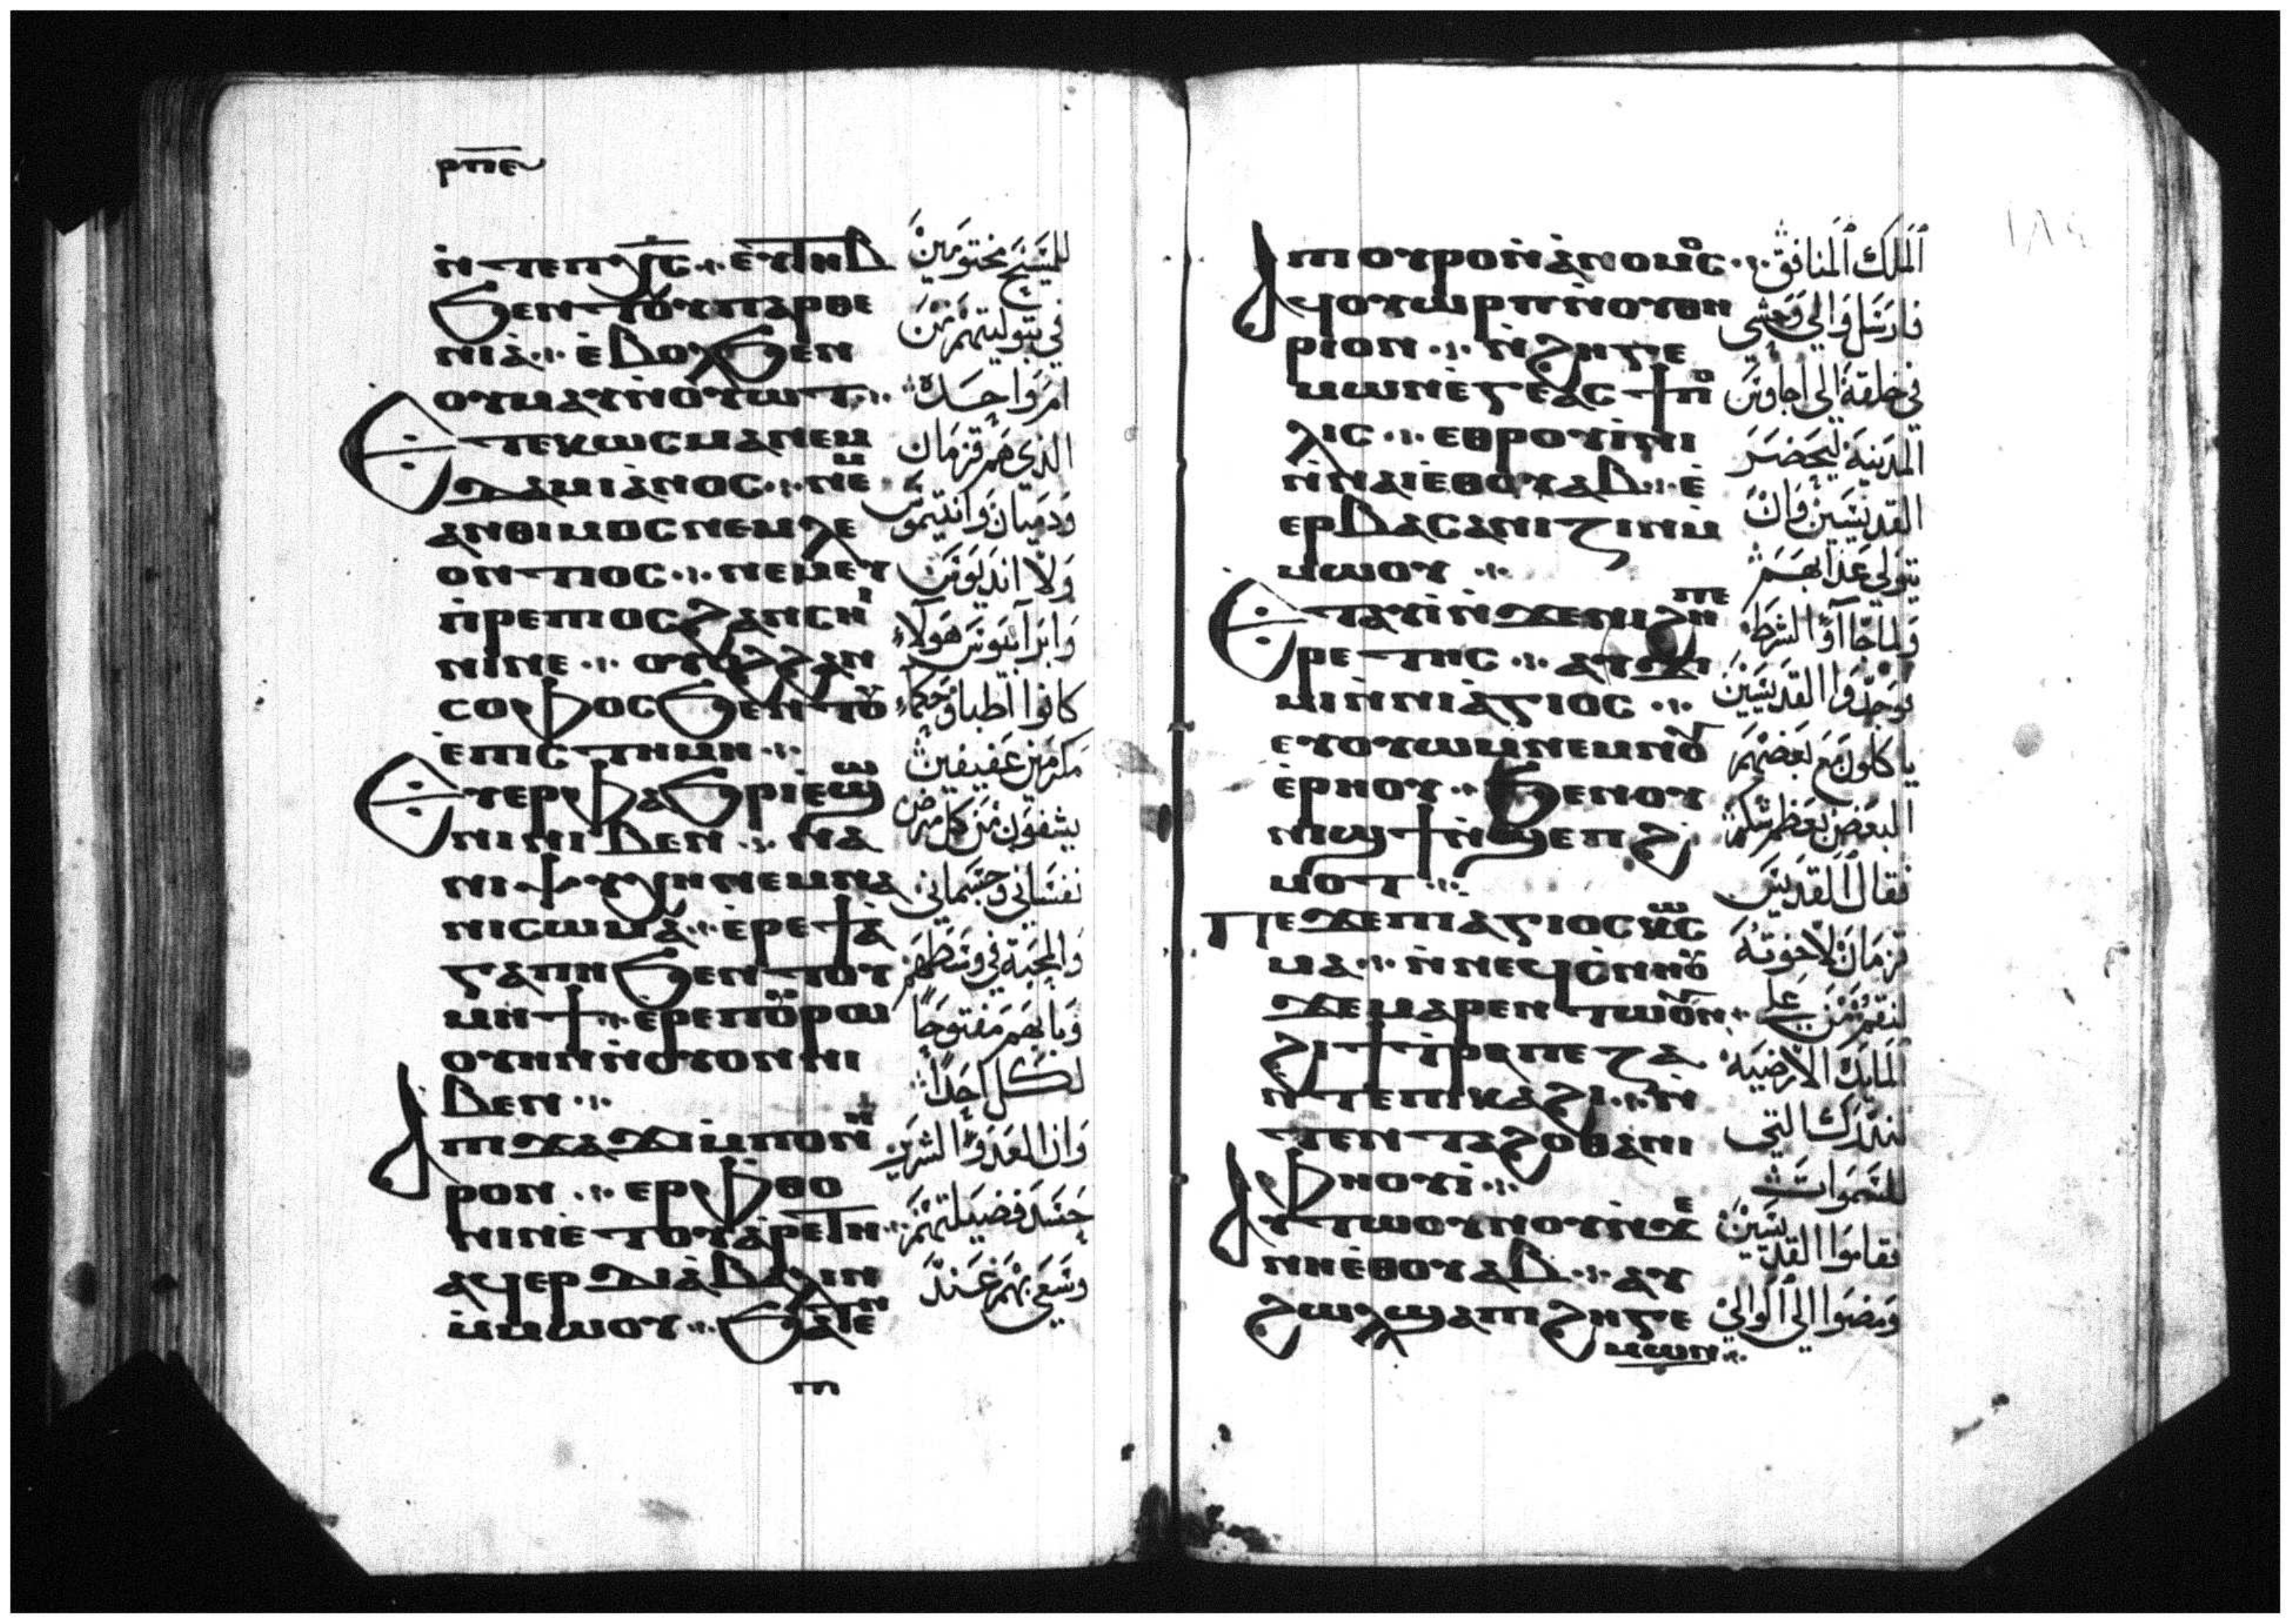 ⲣⲡⲉ
ⲛ̀ⲧⲉⲡⲭ̅ⲥ̅ ⁘ ⲉⲩⲧⲏⲃ
ϧⲉⲛⲧⲟⲩⲡⲁⲣⲑⲉ
ⲛⲓⲁ̀ ⁘ ⲉ̀ⲃⲟⲗϧⲉⲛ
ⲟⲩⲙⲁⲩⲛ̀ⲟⲩⲱⲧ ⁘
Ⲉⲧⲉⲕⲱⲥⲙⲁⲛⲉⲙ
ⲇⲁⲙⲓⲁⲛⲟⲥ ⁘ ⲛⲉⲙ
ⲁⲛⲑⲓⲙⲟⲥⲛⲉⲙⲗⲉ
ⲟⲛⲧⲓⲟⲥ ⁘ ⲛⲉⲙⲉⲩ
ⲡ̀ⲣⲉⲡⲓⲟⲥϩⲁⲛⲥⲏⲓ
ⲛⲓⲛⲉ ⁘ ⲟⲩⲟϩϩⲁⲛ
ⲥⲟⲫⲟⲥϧⲉⲛⲧⲟⲩ
ⲉ̀ⲡⲓⲥⲧⲏⲙⲏ ⁘
Ⲉⲩⲉⲣⲫⲁϧⲣⲓⲉ̀ϣⲱ
ⲛⲓⲛⲓⲃⲉⲛ ⁘ ⲛⲁ
ⲛⲓⲯⲩⲭⲏⲛⲉⲙⲛⲁ
ⲛⲓⲥⲱⲙⲁ ⁘ ⲉ̀ⲣⲉϯⲁ̀
ⲅⲁⲡⲏϧⲉⲛⲧⲟⲩ
ⲙⲏϯ ⁘ ⲉⲣⲉⲡⲟⲩⲣⲱ
ⲟⲩⲏⲛⲛ̀ⲟⲩⲟⲛⲛⲓ
ⲃⲉⲛ ⁘
Ⲁⲡⲓϫⲁϫⲓⲙ̀ⲡⲟⲛⲏ
ⲣⲟⲛ ⁘ ⲉⲣⲫⲑⲟ
ⲛⲓⲛⲉ̀ⲧⲟⲩⲁ̀ⲣⲉⲧⲏ ⁘
ⲁϥⲉⲣⲇⲓⲁ̀ⲃⲁⲗⲓⲛ
ⲙ̀ⲙⲱⲟⲩ ⁘ ϧⲁⲧⲉⲛ
ⲡ
للمسيح مختومين
في بتوليتهم من
ام واحدة
الذي هم قزمان
ودميان وانتيموس
ولاانديوس
وابرابيوس هولاء
كانوا اطبا وحكماء
مكرمين عفيفين
يشفون من كل مرض
نفسانى وجسمانى
والمحبة في وسطهم
وبابهم مفتوحا
لكل احدا
وان العدوا الشرير
حسد فضيلتهم
وسعي بهم عند
١٨٥
ⲡⲟⲩⲣⲟⲛ̀ⲁ̀ⲛⲟⲙⲟⲥ ⁘
Ⲁϥⲟⲩⲱⲣⲡⲛ̀ⲟⲩⲑⲏ
ⲣⲓⲟⲛ ⁘ ⲛ̀ϩⲏⲅⲉ
ⲙⲱⲛⲉ̀ⲅⲉⲁⲥϯⲡⲟ
ⲗⲓⲥ ⁘ ⲉⲑⲣⲟⲩⲓ̀ⲛⲓ
ⲛ̀ⲛⲁⲓⲉⲑⲟⲩⲁⲃ ⁘ ⲉ̀
ⲉⲣⲃⲁⲥⲁⲛⲓⲍⲓⲛⲙ̀
ⲙⲱⲟⲩ ⁘
Ⲉⲧⲁⲩⲓ̀ⲛ̀ϫⲉⲛⲓϩⲩⲡⲉ
ⲣⲉⲧⲏⲥ ⁘ ⲁⲩϫⲓ
ⲙⲓⲛ̀ⲛⲓⲁ̀ⲅⲓⲟⲥ ⁘
ⲉⲩⲟⲩⲱⲙⲛⲉⲙⲛⲟⲩ
ⲉ̀ⲣⲏⲟⲩ ⁘ ϧⲉⲛⲟⲩ
ⲛⲓϣϯⲛ̀ϣⲉⲡϩ
ⲙⲟⲧ ⁘
Ⲡⲉϫⲉⲡⲓⲁⲅⲓⲟⲥⲕⲱⲥ
ⲙⲁ ⁘ ⲛ̀ⲛⲉϥⲥ̀ⲛⲏⲟⲩ
ϫⲉⲙⲁⲣⲉⲛⲧⲱⲟⲩⲛ ⁘
ϩⲓϯⲧ̀ⲣⲁⲡⲉⲍⲁ
ⲛ̀ⲧⲉⲡⲓⲕⲁϩⲓ ⁘ ⲛ̀
ⲧⲉⲛⲧⲁϩⲟⲑⲁⲛⲓ
ⲫⲏⲟⲩⲓ̀ ⁘
Ⲁⲩⲧⲱⲟⲩⲛⲟⲩⲛ̀ϫⲉ
ⲛⲏⲉ̀ⲑⲟⲩⲁⲃ ⁘ ⲁⲩ
ϩⲱⲗϣⲁⲡⲓϩⲏⲅⲉ
ⲙⲱⲛ ⁘
الملك المنافق
فارسل والي وحشي
في خلقة الي اجاوس
المدينة ليحضر
القديسين وان
يتولي عذابهم
ولما جاآوا الشرط
فوجدوا القديسين
ياكلون مع بعضهم
البعض بعظم شكر
فقال القديس
قزمان لاخوته
لنقم من علي
المايدة الارضية
لندرك التي
للسموات
فقاموا القديسين
ومضوا الي الوالي